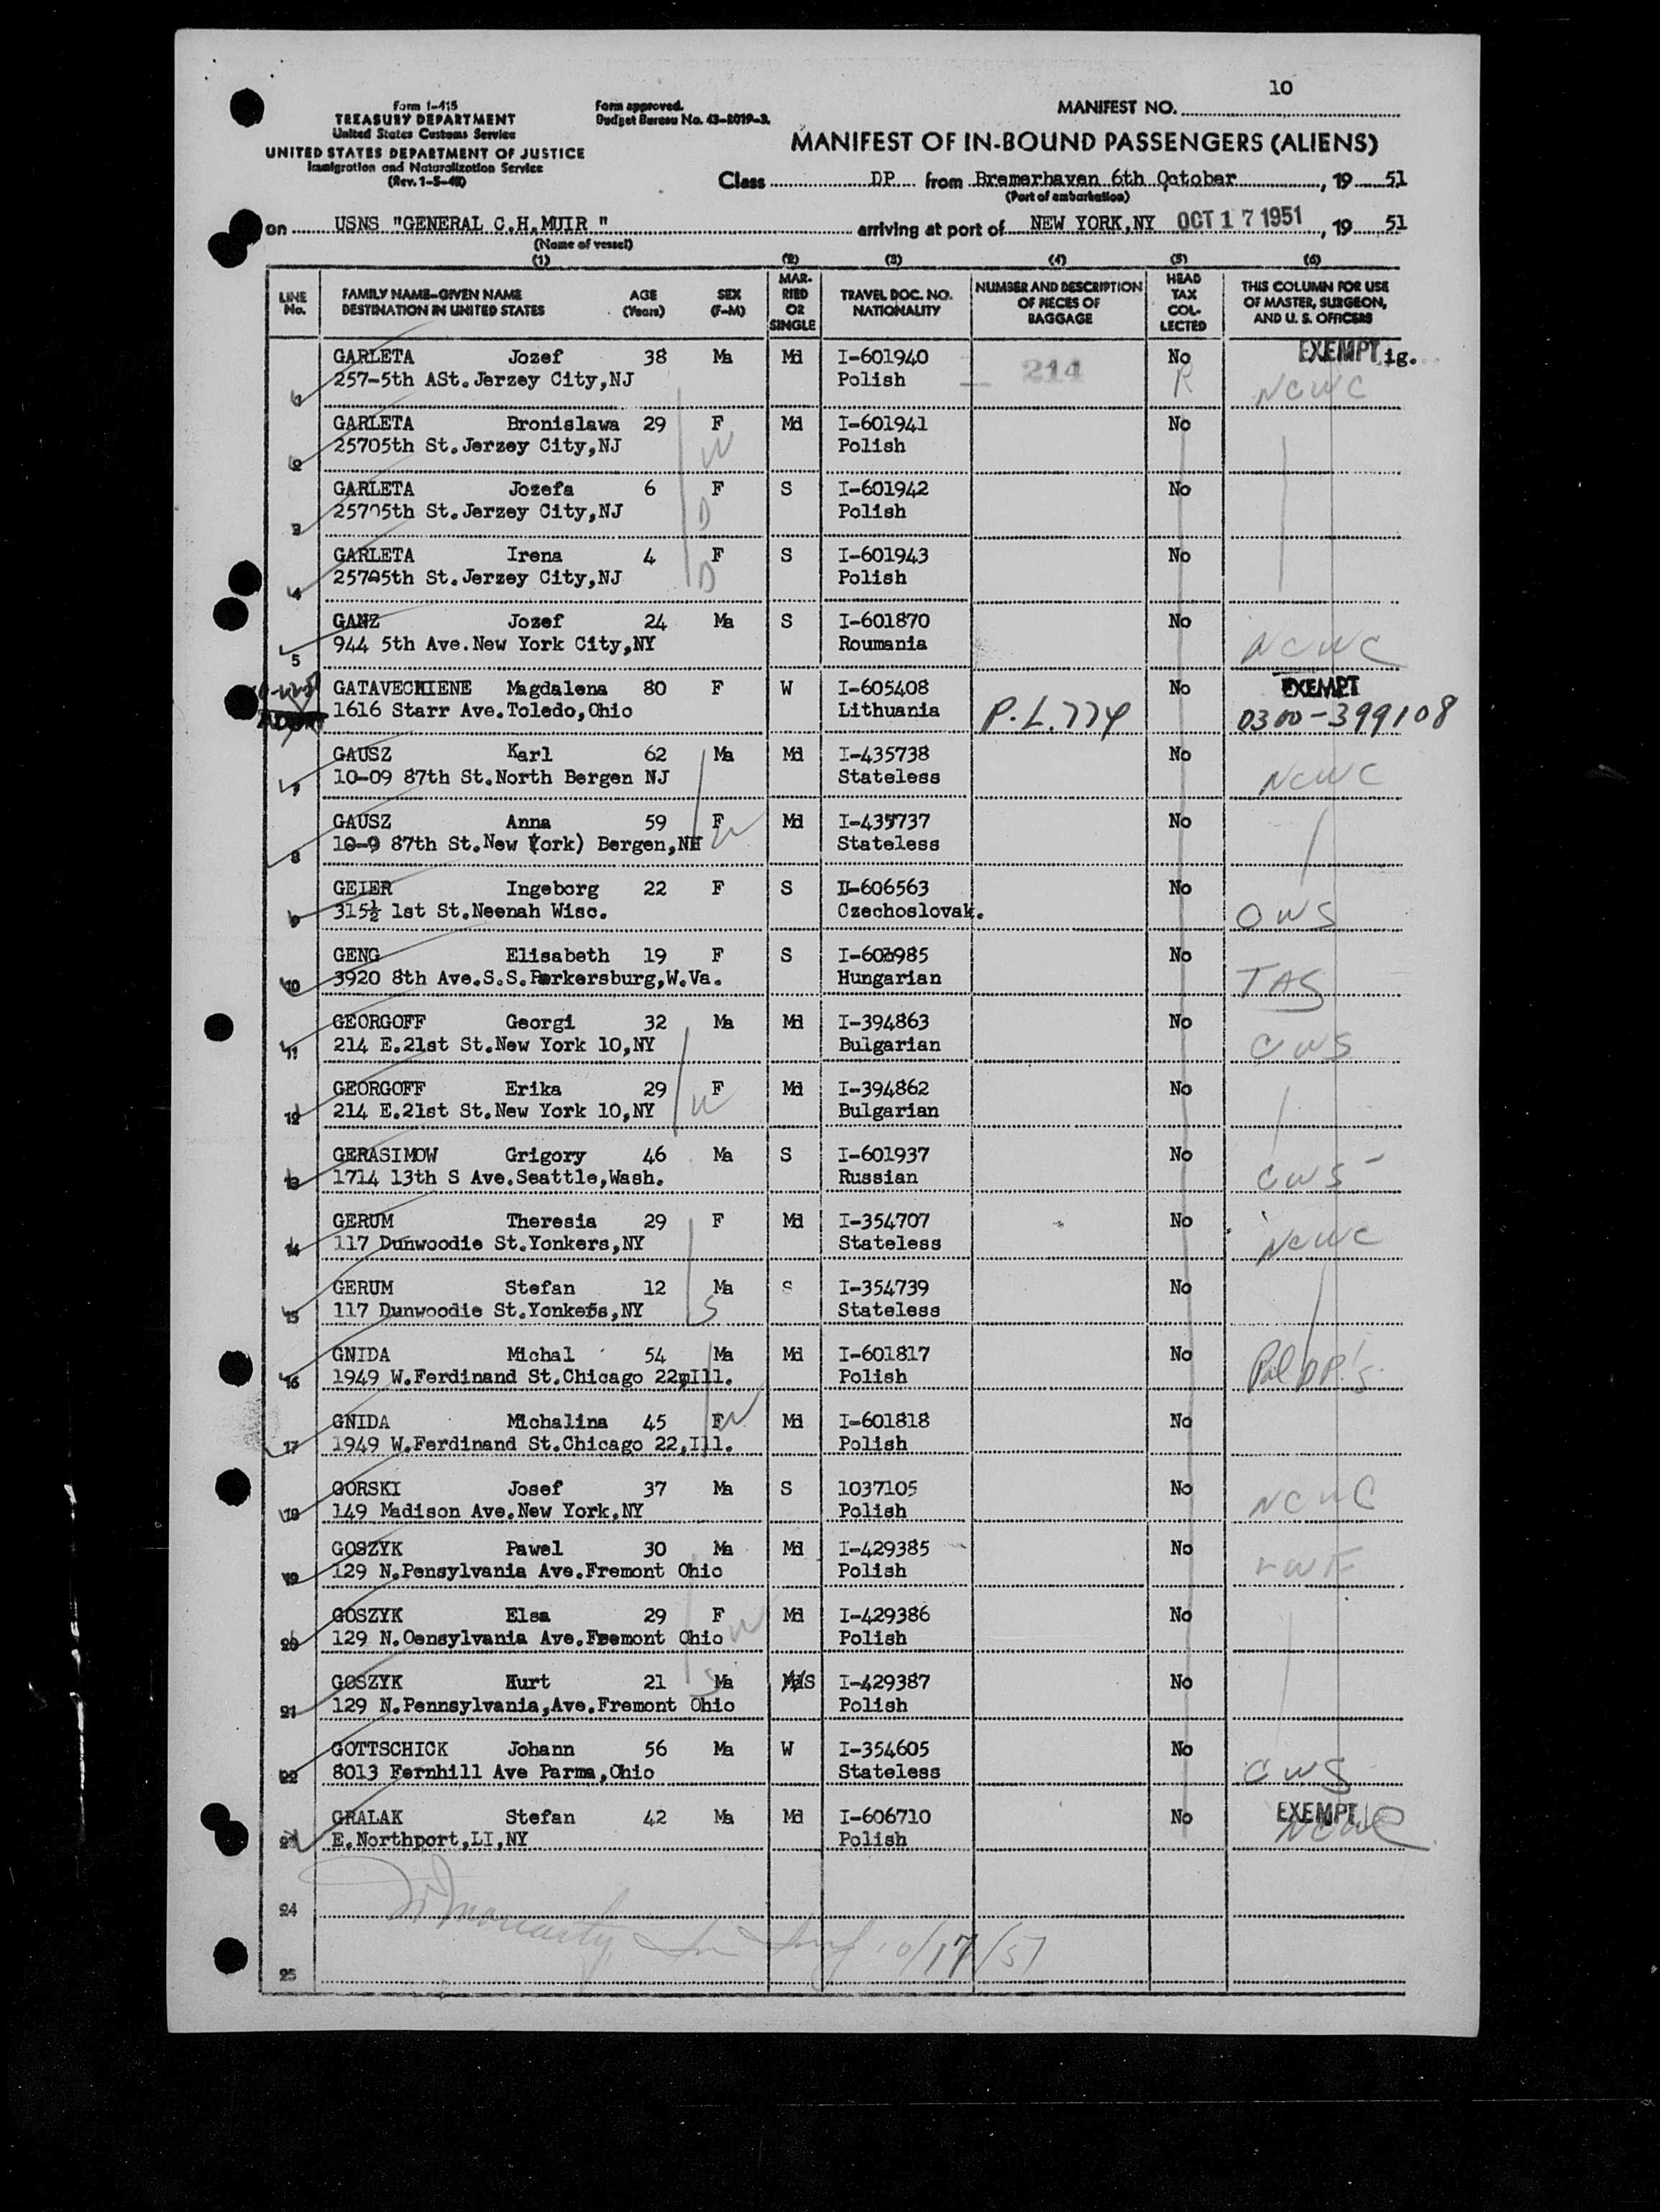 10
Form I-415
TREASURY DEPARTMENT
United States Customs Service
UNITED STATES DEPARTMENT OF JUSTICE
Immigration and Naturalization Service
(Rev. 1-5-48)
Form approved.
Budget Bureau No. 43-R019-3.
MANIFEST NO.
MANIFEST OF IN-BOUND PASSENGERS (ALIENS)
Class DP from Bremerhaven 6th October, 19 51
(Port of embarkation)
on USNS "GENERAL C.H.MUIR " arriving at port of NEW YORK,NY OCT 17 1951, 19 51
(Name of vessel)
(1) (2) (3) (4) (5) (6)
LINE No. FAMILY NAME-GIVEN NAME DESTINATION IN UNITED STATES AGE (Years) SEX (F-M) MARRIED OR SINGLE TRAVEL DOC. NO. NATIONALITY NUMBER AND DESCRIPTION OF PIECES OF BAGGAGE HEAD TAX COLLECTED THIS COLUMN FOR USE OF MASTER, SURGEON, AND U. S. OFFICERS
GARLETA Jozef 38 Ma Md I-601940 214 No EXEMPT ig.
1 257-5th ASt.Jerzey City,NJ Polish R NCWC
GARLETA Bronislawa 29 F Md I-601941 No
2 25705th St.Jerzey City,NJ W Polish
GARLETA Jozefa 6 F S I-601942 No
3 25705th St.Jerzey City,NJ D Polish
GARLETA Irena 4 F S I-601943 No
4 25705th St.Jerzey City,NJ D Polish
GANZ Jozef 24 Ma S I-601870 No
5 944 5th Ave.New York City,NY Roumania NCWC
GATAVECKIENE Magdalena 80 F W I-605408 No EXEMPT
1616 Starr Ave.Toledo,Ohio Lithuania P.L.774 0300-399108
GAUSZ Karl 62 Ma Md I-435738 No
7 10-09 87th St.North Bergen NJ Stateless NCWC
GAUSZ Anna 59 F Md I-435737 No
8 10-9 87th St.New (ork) Bergen,NH W Stateless
GEIER Ingeborg 22 F S I-606563 No
9 315½ 1st St.Neenah Wisc. Czechoslovak. CWS
GENG Elisabeth 19 F S I-603985 No
10 3920 8th Ave.S.S.Parkersburg,W.Va. Hungarian TAS
GEORGOFF Georgi 32 Ma Md I-394863 No
11 214 E.21st St.New York 10,NY Bulgarian CWS
GEORGOFF Erika 29 F Md I-394862 No
12 214 E.21st St.New York 10,NY W Bulgarian
GERASIMOW Grigory 46 Ma S I-601937 No
13 1714 13th S Ave.Seattle,Wash. Russian CWS
GERUM Theresia 29 F Md I-354707 No
14 117 Dunwoodie St.Yonkers,NY Stateless NCWC
GERUM Stefan 12 Ma S I-354739 No
15 117 Dunwoodie St.Yonkers,NY S Stateless
GNIDA Michal 54 Ma Md I-601817 No
16 1949 W.Ferdinand St.Chicago 22,Ill. Polish Pol DP's
GNIDA Michalina 45 F W Md I-601818 No
17 1949 W.Ferdinand St.Chicago 22,Ill. Polish
GORSKI Josef 37 Ma S 1037105 No
18 149 Madison Ave.New York,NY Polish NCWC
GOSZYK Pawel 30 Ma Md I-429385 No
19 129 N.Pensylvania Ave.Fremont Ohio Polish LWF
GOSZYK Elsa 29 F Md I-429386 No
20 129 N.Oensylvania Ave.Fremont Ohio W Polish
GOSZYK Kurt 21 Ma S I-429387 No
21 129 N.Pennsylvania,Ave.Fremont Ohio S Polish
GOTTSCHICK Johann 56 Ma W I-354605 No
22 8013 Fernhill Ave Parma,Ohio Stateless CWS
GRALAK Stefan 42 Ma Md I-606710 No EXEMPT
23 E.Northport,LI,NY Polish NCWC
24
10/17/51
25